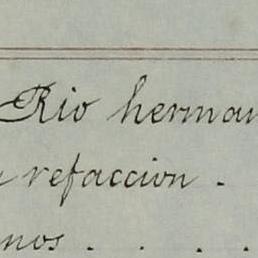 Rio herman
refaccion .
nos . . . .